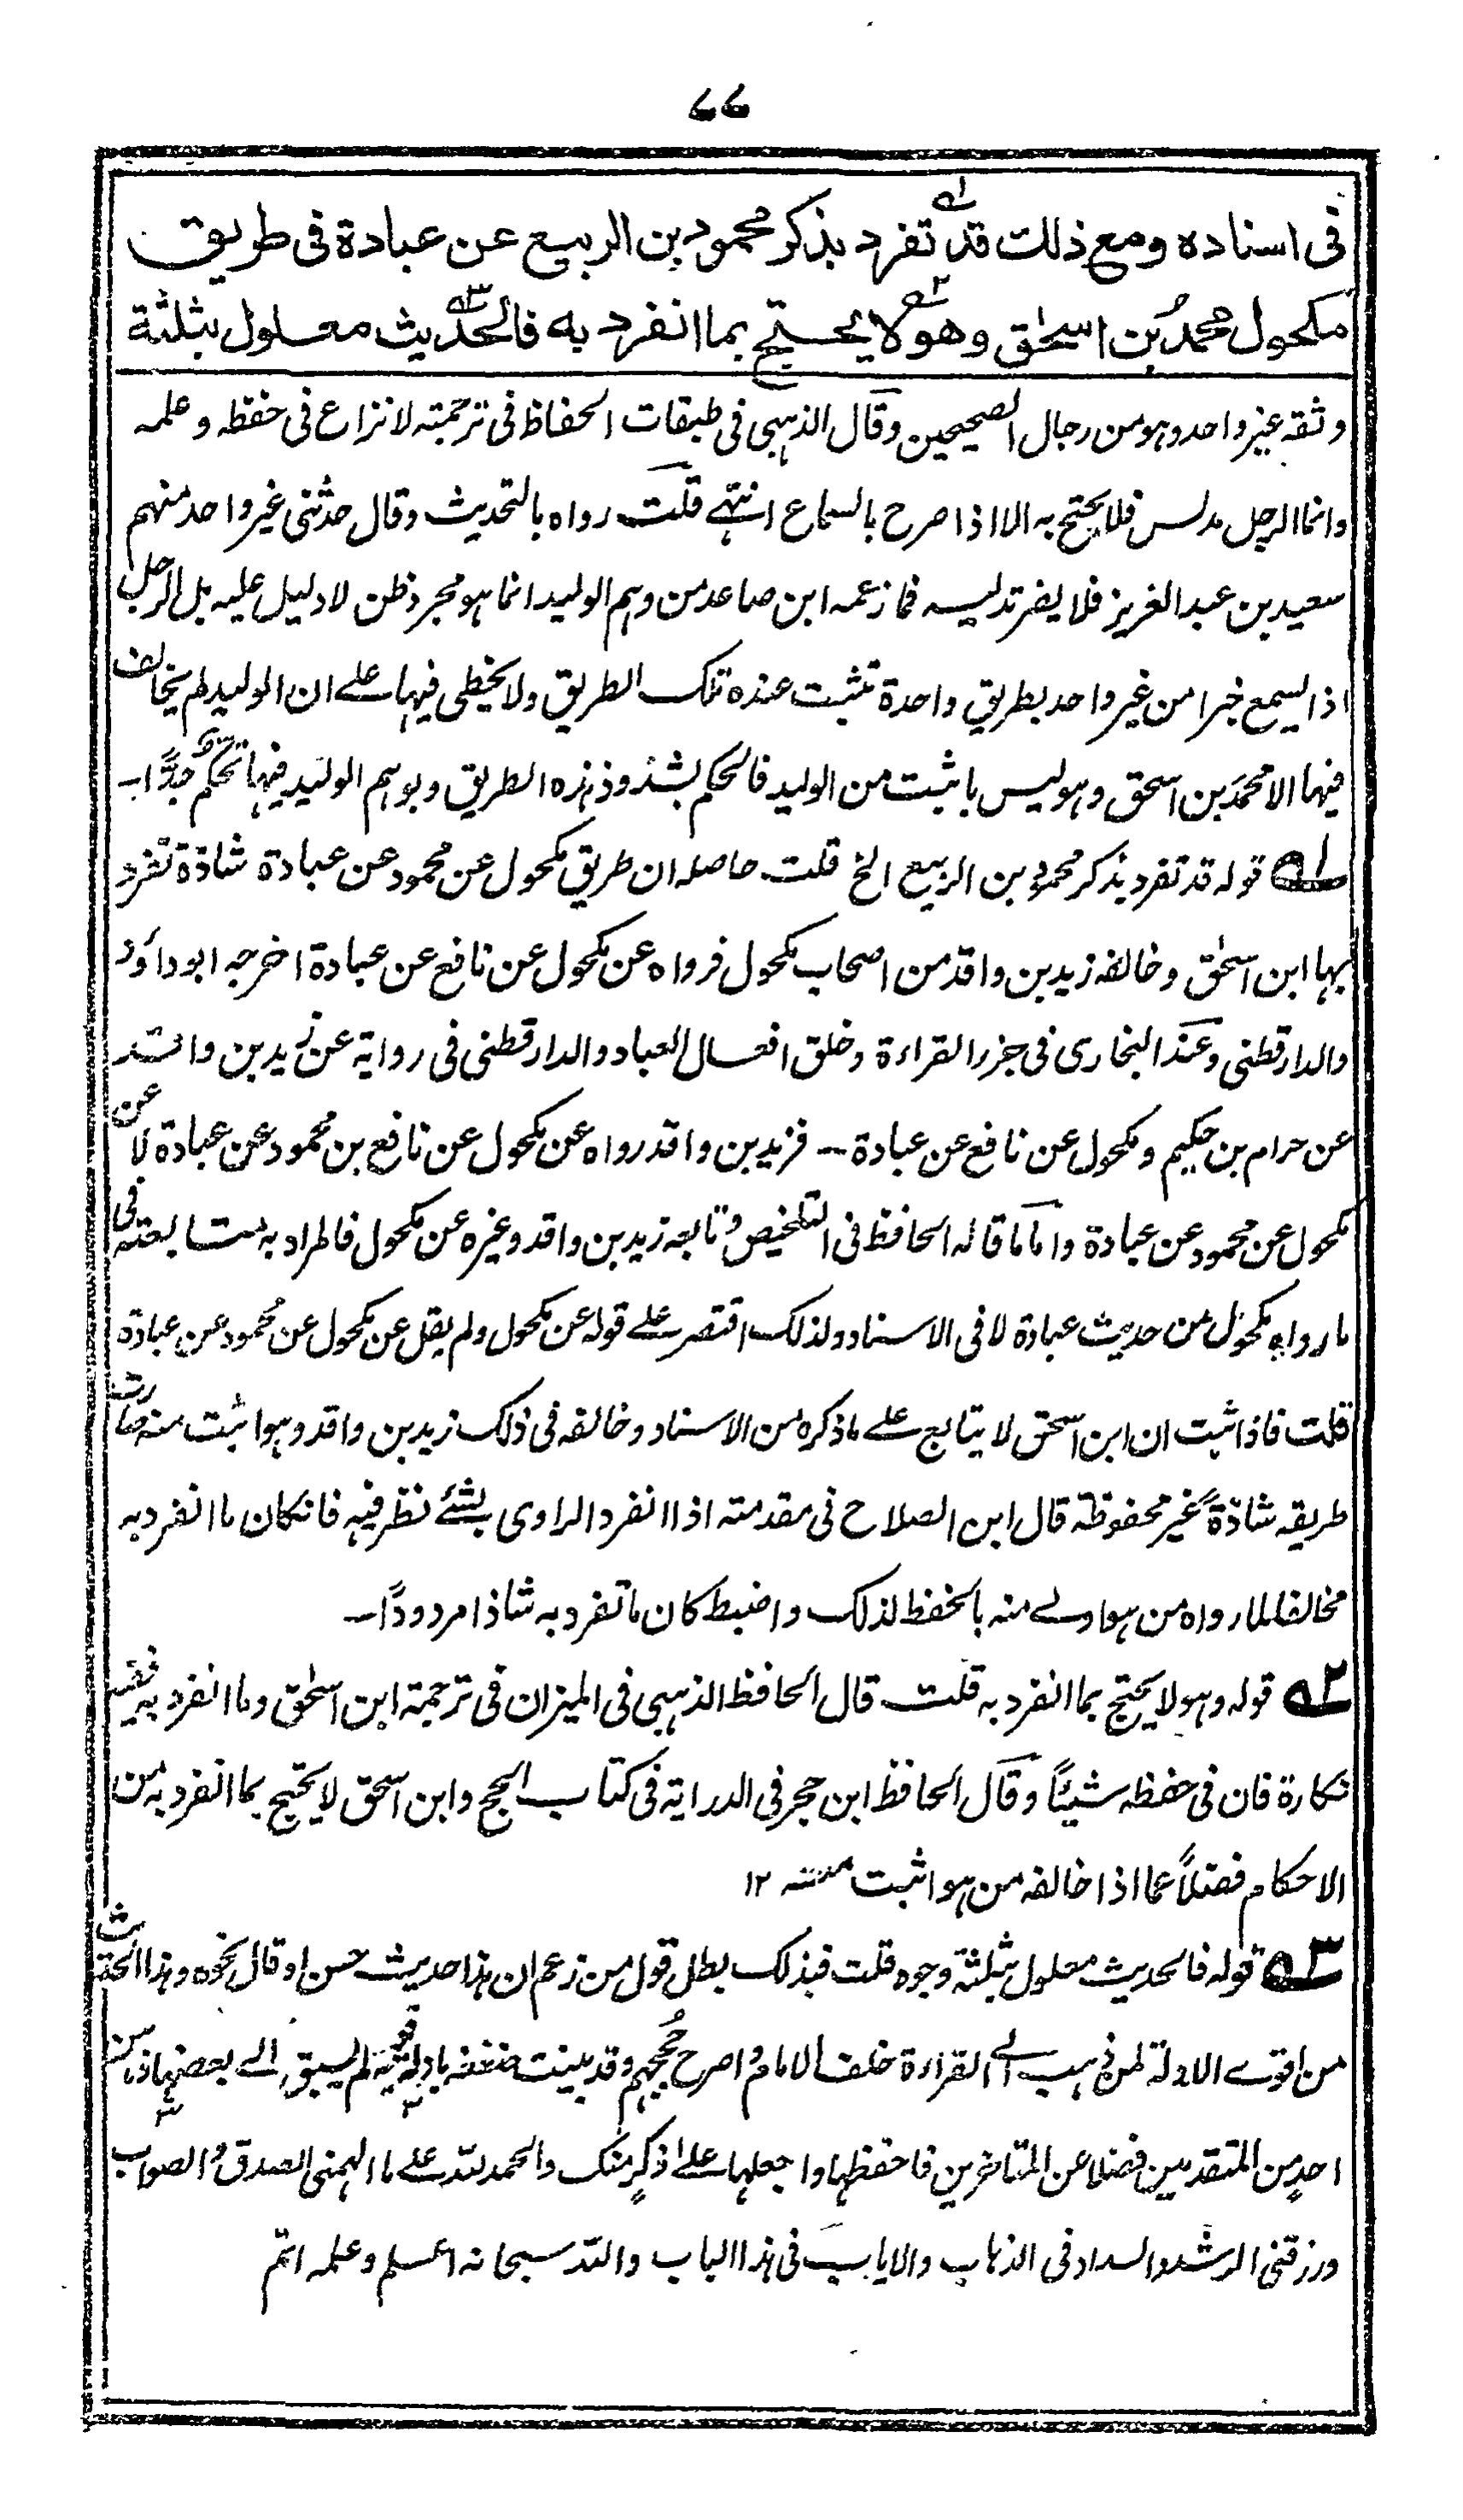 ۷۷
فی اسنادہ ومع ذلك قد لہ۱ تفرد بذکر محمود بن الربیع عن عبادۃ فی طریق
مکحول محمدُ بن اسحٰق وهو لہ۲ لا یحتج بما انفرد به فالحدیث لہ۳ معلول بثلثة
وثقہ غیر واحد وہو من رجال الصحیحین وقال الذہبی فی طبقات الحفاظ فی ترجمتہ لا نزاع فی حفظہ وعلمہ
وانما الرجل مدلس فلا یحتج بہ الا اذا صرح بالسماع انتہے قلت رواہ بالتحدیث وقال حدثنی غیر واحد منہم
سعید بن عبد العزیز فلا یضر تدلیسہ فما زعمہ ابن صاعد من وہم الولید انما ہو مجرد ظن لا دلیل علیہ بل الرجل
اذا یسمع خبرا من غیر واحد بطریق واحدۃ تثبت عندہ تلک الطریق ولا یخطی فیہا علے ان الولید لم یخالف
فیہا الا محمد بن اسحق وہو لیس باثبت من الولید فالحکم بشذوذ ہذہ الطریق وبوہم الولید فیہا تحکم جدًّا۔
لہ۱ قولہ قد تفرد بذکر محمود بن الربیع الخ قلت حاصلہ ان طریق مکحول عن محمود عن عبادۃ شاذۃ تفرد
بہا ابن اسحٰق وخالفہ زید بن واقد من اصحاب مکحول فرواہ عن مکحول عن نافع عن عبادۃ اخرجہ ابو داؤد
والدارقطنی وعند البخاری فی جزء القراءۃ وخلق افعال العباد والدارقطنی فی روایۃ عن زید بن واقد
عن حرام بن حکیم ومکحول عن نافع عن عبادۃ۔ فزید بن واقد رواہ عن مکحول عن نافع بن محمود عن عبادۃ لا عن
مکحول عن محمود عن عبادۃ واما ما قالہ الحافظ فی التلخیص وتابعہ زید بن واقد وغیرہ عن مکحول فالمراد بہ متابعتہ فی
ما رواہ مکحول من حدیث عبادۃ لا فی الاسناد ولذلک اقتصر علے قولہ عن مکحول ولم یقل عن مکحول عن محمود عن عبادۃ
قلت فاذا ثبت ان ابن اسحق لا یتابع علے ما ذکرہ من الاسناد وخالفہ فی ذلک زید بن واقد وہو اثبت منہ صارت
طریقہ شاذۃً غیر محفوظۃ قال ابن الصلاح فی مقدمتہ اذا انفرد الراوی بشئ نظر فیہ فانکان ما انفرد بہ
مخالفا لما رواہ من ہو اولے منہ بالحفظ لذلک واضبط کان ما تفرد بہ شاذا مردودًا۔
لہ۲ قولہ وہو لا یحتج بما انفرد بہ قلت قال الحافظ الذہبی فی المیزان فی ترجمۃ ابن اسحٰق وما انفرد بہ ففیہ
نکارۃ فان فی حفظہ شیئًا وقال الحافظ ابن حجر فی الدرایۃ فی کتاب الحج وابن اسحق لا یحتج بما انفرد بہ من
الاحکام فضلاً عما اذا خالفہ من ہو اثبت منہ ۱۲
لہ۳ قولہ فالحدیث معلول بثلثۃ وجوہ قلت فبذلک بطل قول من زعم ان ہذا حدیث حسن او قال نحوہ وہذا الحدیث
من اقوے الادلۃ لمن ذہب الے القراءۃ خلف الامام واصرح حججہم وقد بینت ضعفہ بادلۃ قویۃ لم یسبق الے بعضہا ذہن
احدٍ من المتقدمین فضلا عن المتاخرین فاحفظہا واجعلہا علے ذکرٍ منک والحمد للہ علے ما الہمنی الصدق والصواب
ورزقنی الرشد والسداد فی الذہاب والایاب فی ہذا الباب واللہ سبحانہ اعلم وعلمہ اتم